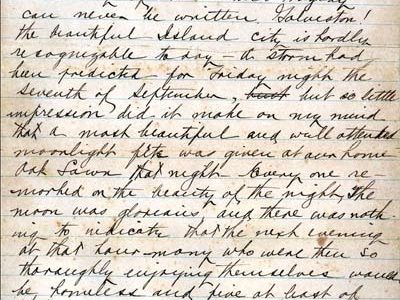 can never be written. Galveston!
the beautiful Island city is hardly
recognizable to day — a storm had
been predicted for Friday night the
seventh of September, but so little
impression did it make on my mind
that a most beautiful and well attended
moonlight fete was given at our home
Oak Lawn that night. Every one re-
marked on the beauty of the night, the
moon was glorious, and there was noth-
ing to indicate that the next evening
at that hour many who were then so
thoroughly enjoying themselves would
be homeless and five at least of